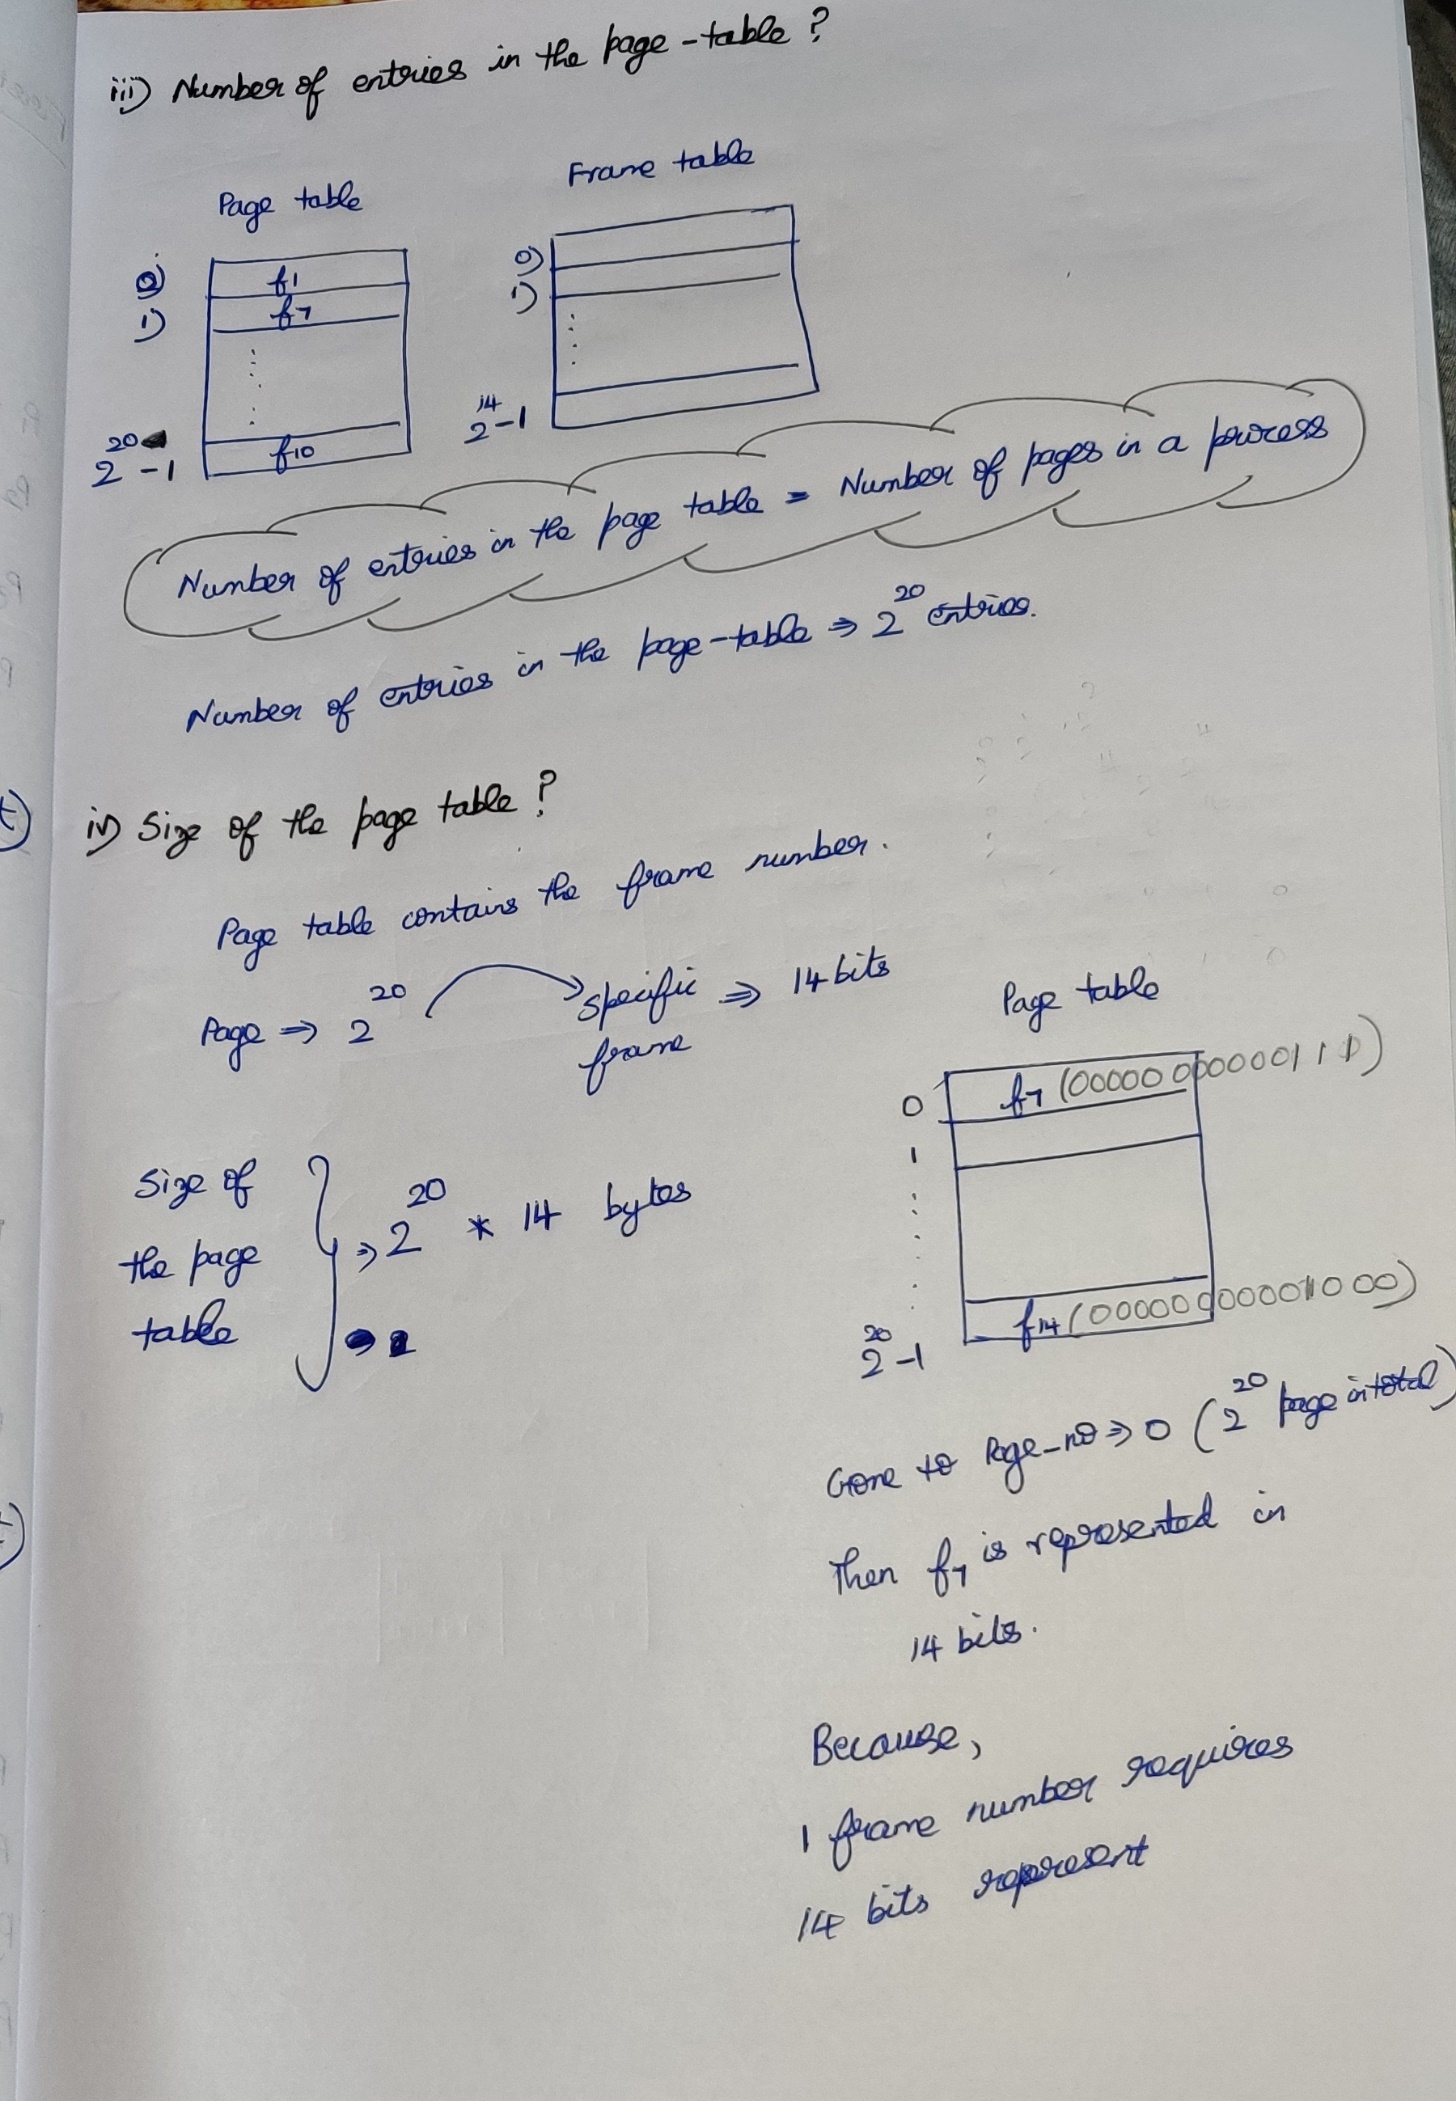 iii) Number of entries in the page-table ?
Page table
Frame table
0)
f1
1)
f7
2^20 -1
f10
0)
1)
2^14 -1
Number of entries in the page table = Number of pages in a process
Number of entries in the page-table ⇒ 2^20 entries.
iv) Size of the page table ?
Page table contains the frame number.
Page ⇒ 2^20
specific frame ⇒ 14 bits
Size of
the page
table
⇒ 2^20 * 14 bytes
Page table
0
f7 (00000000000111)
1
2^20 -1
f14 (
Gone to Page_no ⇒ 0 (2^20 page in total)
Then f7 is represented in
14 bits.
Because,
1 frame number requires
14 bits represent